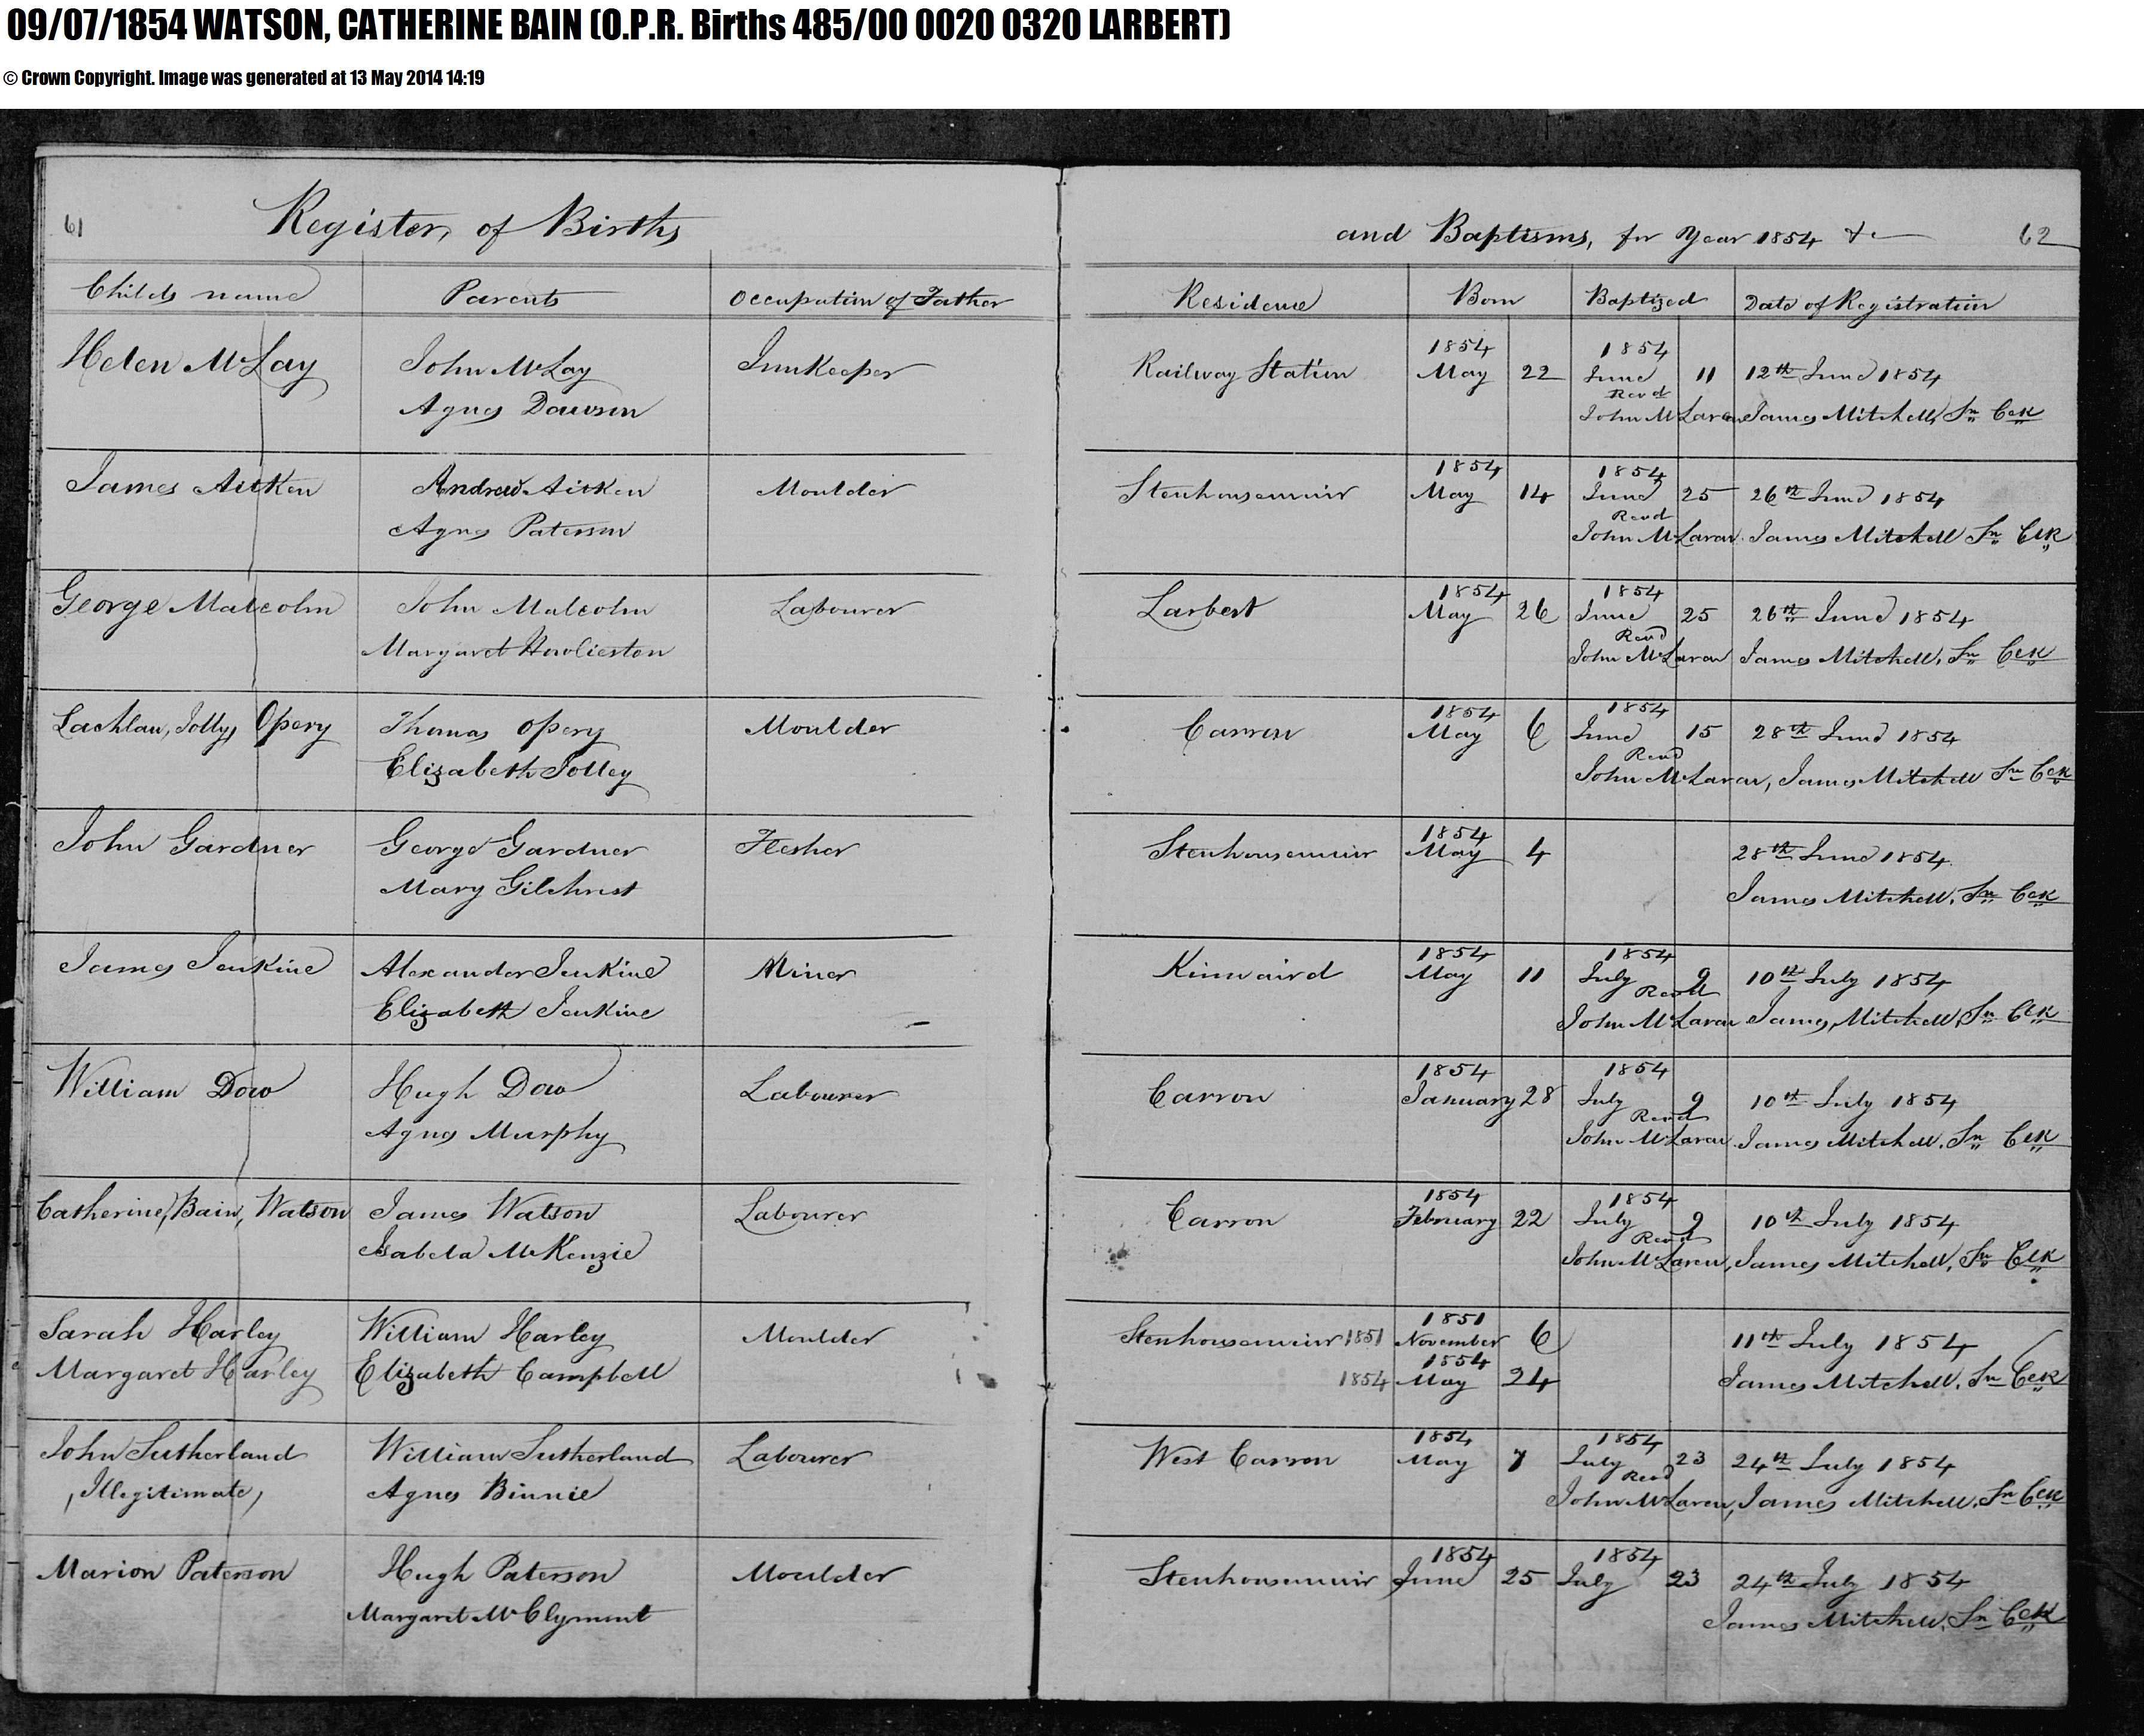 09/07/1854 WATSON, CATHERINE BAIN (O.P.R. Births 485/00 0020 0320 LARBERT)
© Crown Copyright. Image was generated at 13 May 2014 14:19
61 Register, of Births
and Baptisms, for Year 1854 &c 62
Childs name Parents Occupation of Father Residence Born Baptized Date of Registration
1854 1854
Helen McLay John McLay Innkeeper Railway Station May 22 June 11 12th June 1854
Revd
Agnes Dawson John McLaren James Mitchell, Sn Clk
1854 1854
James Aitken Andrew Aitken Moulder Stenhousemuir May 14 June 25 26th June 1854
Revd
Agnes Paterson John McLaren James Mitchell Sn Clk
1854 1854
George Malcolm John Malcolm Labourer Larbert May 26 June 25 26th June 1854
Revd
Margaret Howlieston John McLaren James Mitchell, Sn Clk
1854 1854
Lachlan, Jolly, Opery Thomas Opery Moulder Carron May 6 June 15 28th June 1854
Revd
Elizabeth Jolley John McLaren, James Mitchell Sn Clk
1854
John Gardner George Gardner Flesher Stenhousemuir May 4 28th June 1854
Mary Gilchrist James Mitchell, Sn Clk
1854 1854
James Jenkine Alexander Jenkine Miner Kinnaird May 11 July 9 10th July 1854
Revd
Elizabeth Jenkine John McLaren James, Mitchell, Sn Clk
1854 1854
William Dow Hugh Dow Labourer Carron January 28 July 9 10th July 1854
Revd
Agnes Murphy John McLaren James Mitchell, Sn Clk
1854 1854
Catherine, Bain, Watson James Watson Labourer Carron February 22 July 9 10th July 1854
Revd
Isabela McKenzie John McLaren, James Mitchell, Sn Clk
1851
Sarah Harley William Harley Moulder Stenhousemuir 1851 November 6 11th July 1854
1854
Margaret Harley Elizabeth Campbell 1854 May 24 James Mitchell, Sn Clk
1854 1854
John Sutherland William Sutherland Labourer West Carron May 7 July 23 24th July 1854
Revd
, Illegitimate, Agnes Binnie John McLaren, James Mitchell, Sn Clk
1854 1854
Marion Paterson Hugh Paterson Moulder Stenhousemuir June 25 July 23 24th July 1854
Margaret McClymont James Mitchell, Sn Clk